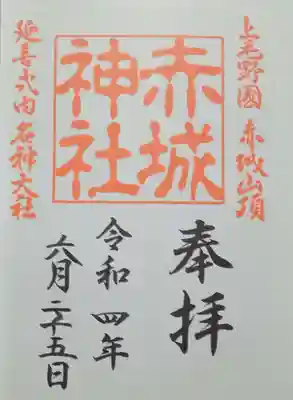 上毛野國 赤城山頂
奉拝
赤城
神社
令和四年
六月二十五日
延喜式内名神大社